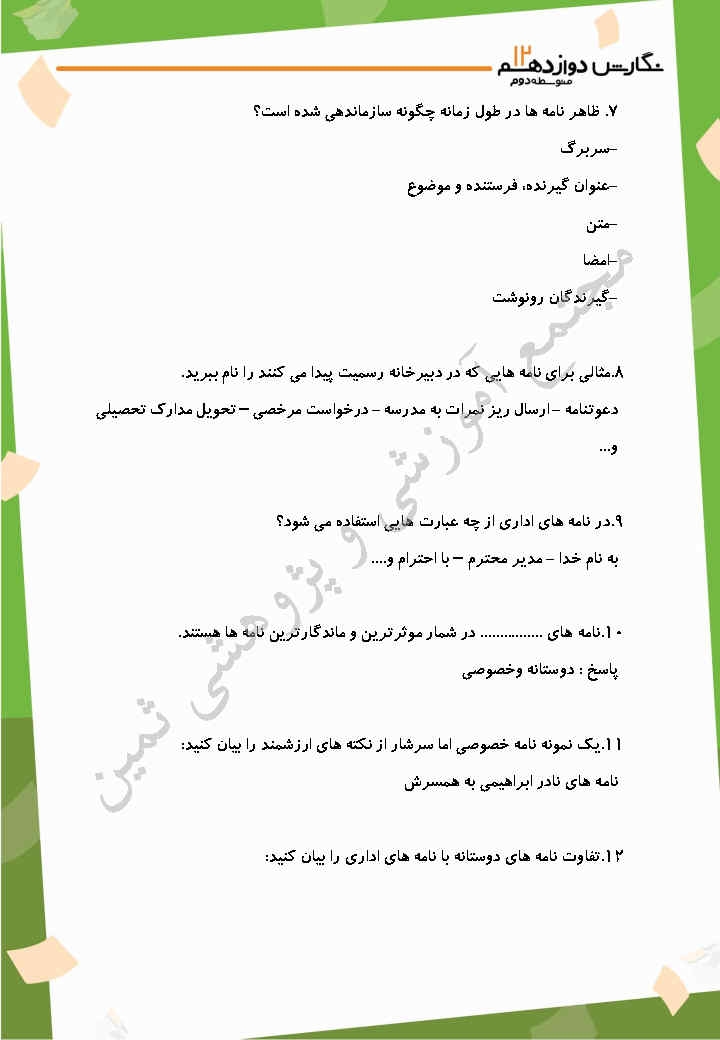 نگارش دوازدهم ۱۲
متوسطه دوم
۷. ظاهر نامه ها در طول زمانه چگونه سازماندهی شده است؟
-سربرگ
-عنوان گیرنده، فرستنده و موضوع
-متن
-امضا
-گیرندگان رونوشت
۸.مثالی برای نامه هایی که در دبیرخانه رسمیت پیدا می کنند را نام ببرید.
دعوتنامه – ارسال ریز نمرات به مدرسه – درخواست مرخصی – تحویل مدارک تحصیلی
و...
۹.در نامه های اداری از چه عبارت هایی استفاده می شود؟
به نام خدا – مدیر محترم – با احترام و....
۱۰.نامه های ............... در شمار موثرترین و ماندگارترین نامه ها هستند.
پاسخ : دوستانه وخصوصی
۱۱.یک نمونه نامه خصوصی اما سرشار از نکته های ارزشمند را بیان کنید:
نامه های نادر ابراهیمی به همسرش
۱۲.تفاوت نامه های دوستانه با نامه های اداری را بیان کنید:
مجتمع آموزشی و پژوهشی ثمین